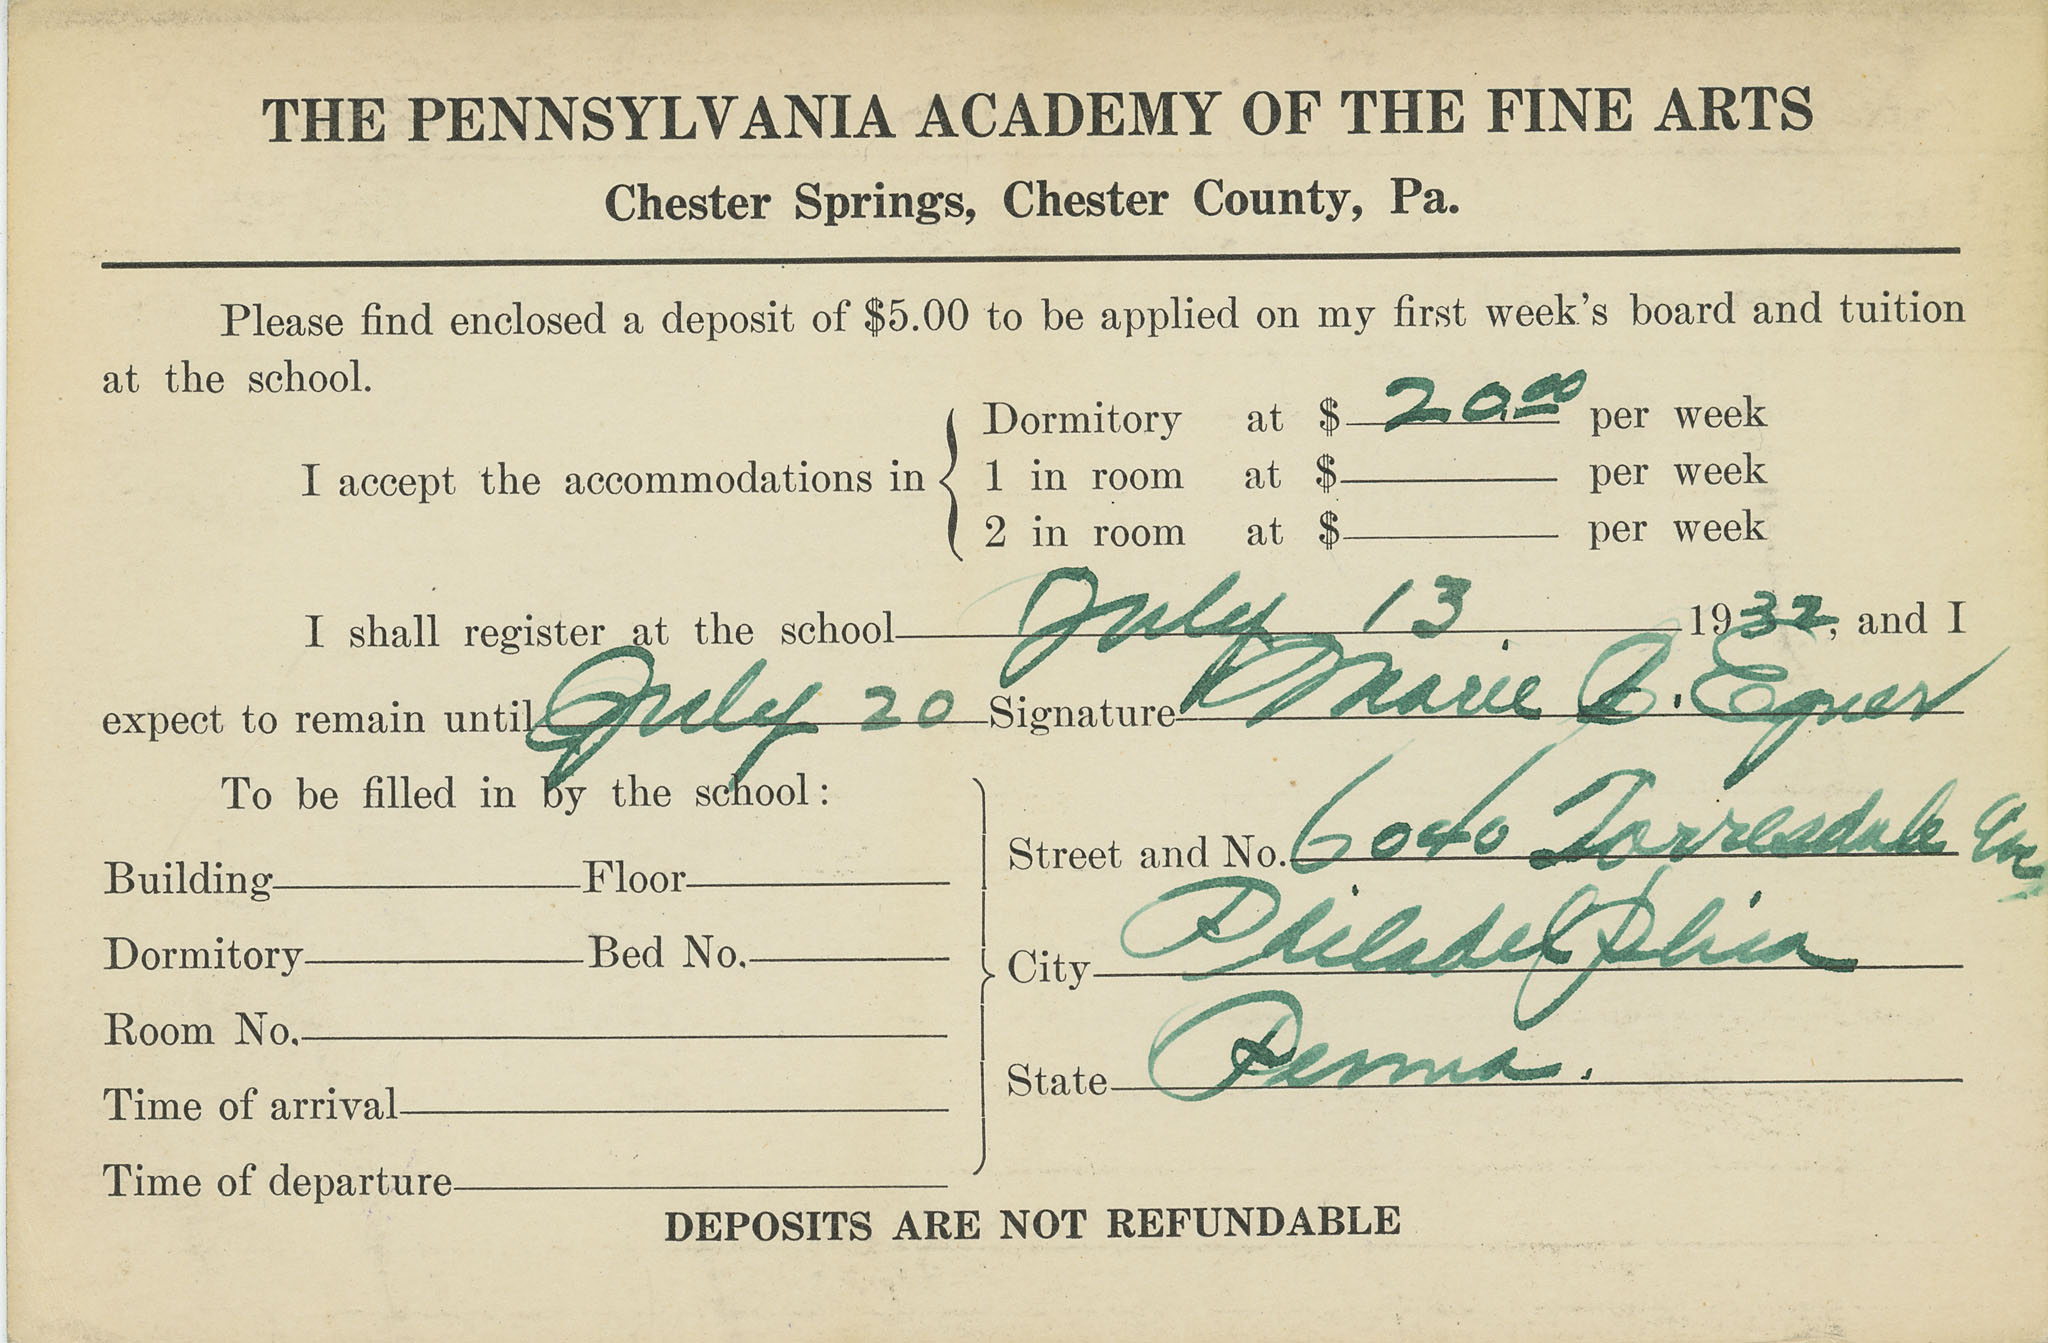 THE PENNSYLVANIA ACADEMY OF THE FINE ARTS
Chester Springs, Chester County, Pa.
Please find enclosed a deposit of $5.00 to be applied on my first week's board and tuition
at the school.
I accept the accommodations in
Dormitory at $ 20.00 per week
1 in room at $ per week
2 in room at $ per week
I shall register at the school July 13 1932, and I
expect to remain until July 20 Signature Marie Egner
To be filled in by the school:
Street and No. 6040 Torresdale Ave
Building Floor
City Philadelphia
Dormitory Bed No.
Room No.
State Penna.
Time of arrival
Time of departure
DEPOSITS ARE NOT REFUNDABLE